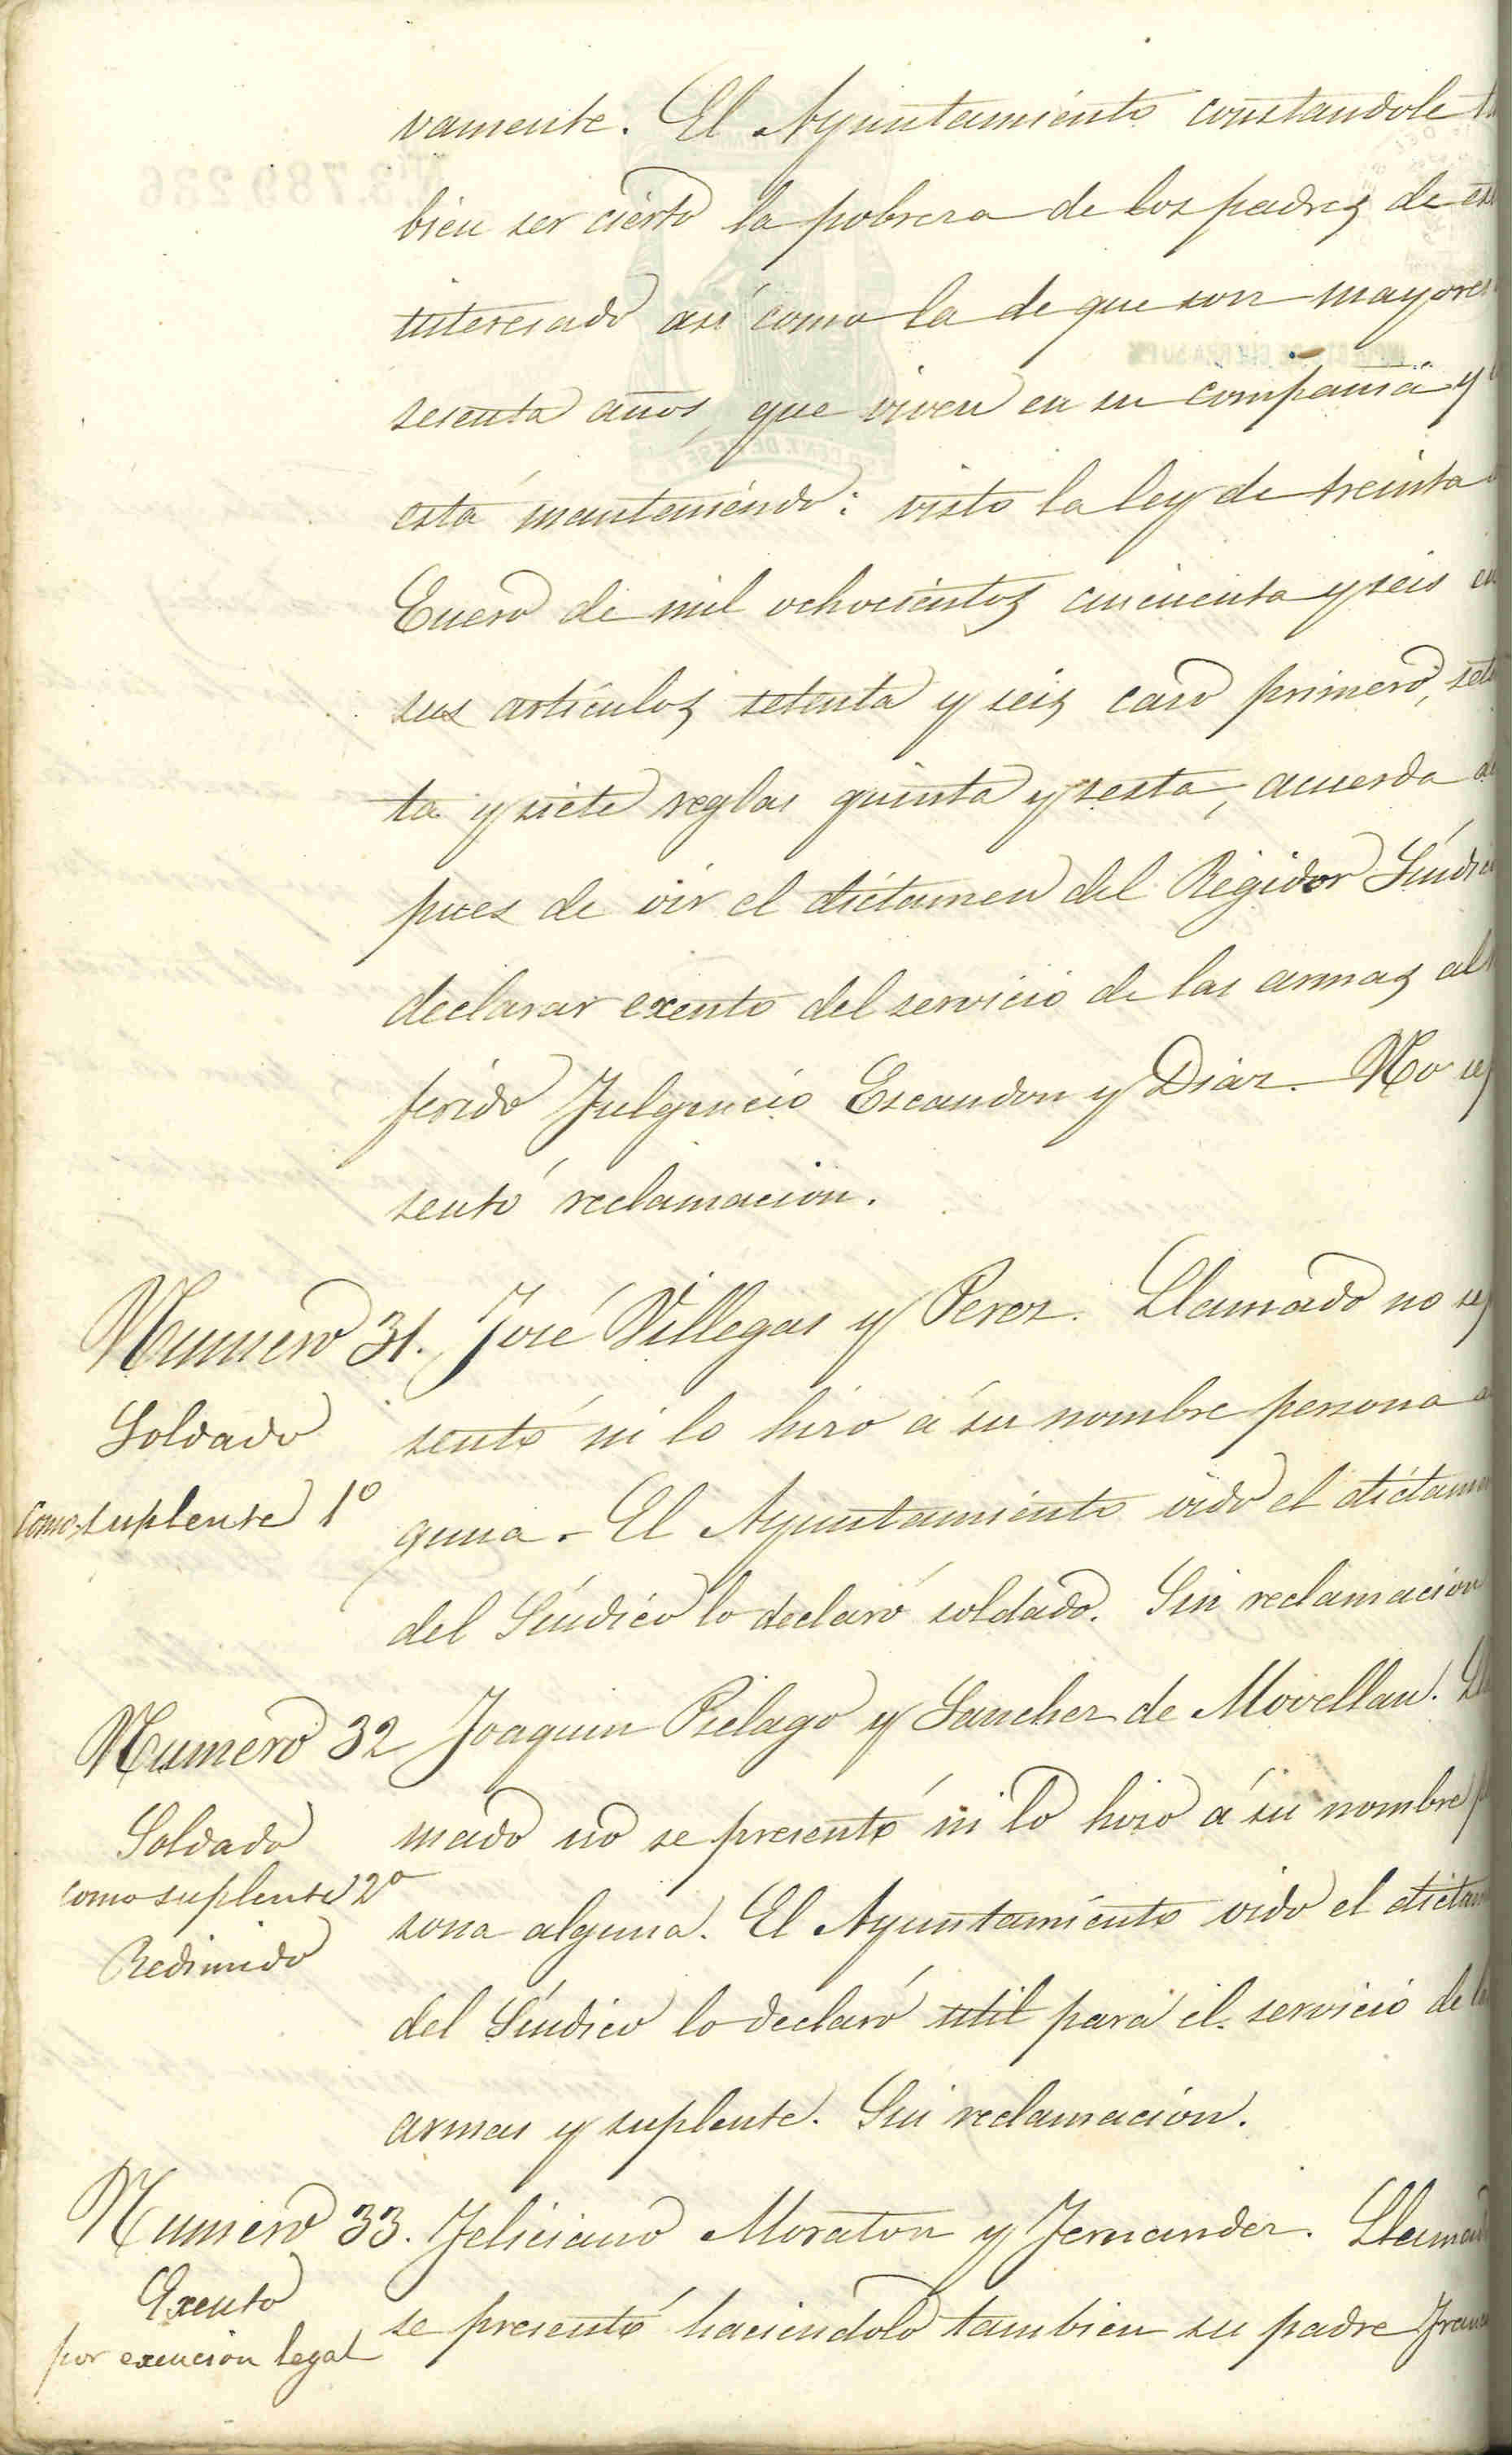 vamente. El Ayuntamiento constandole
bien ser cierto la pobreza de los padres de es
interesado así como la de que son mayores
sesenta años, que viven en su compañia y
está manteniendo: visto la ley de treinta
Enero de mil ochocientos cincuenta y seis en
sus artículos setenta y seis caso primero, seten
ta y siete reglas quinta y sesta, acuerda
pues de oir el dictamen del Regidor Síndico
declarar exento del servicio de las armas al
ferido Fulgencio Escandon y Diaz. No se
sentó reclamacion.
Numero 31. José Villegas y Perez. Llamado no se
Soldado
como suplente 1º
sentó ni lo hizo á su nombre persona
guna. El Ayuntamiento oido el dictamen
del Síndico lo declaró soldado. Sin reclamacion
Numero 32 Joaquin Pielago y Sanchez de Movellan. Lla
Soldado
como suplente 2º
Redimido
mado no se presentó ni lo hizo á su nombre
sona alguna. El Ayuntamiento oido el dictam
del Síndico lo declaró util para el servicio de las
armas y suplente. Sin reclamacion.
Numero 33. Feliciano Moraton y Fernandez. Llamado
Exento
por exencion legal
se presentó haciendolo tambien su padre Fran